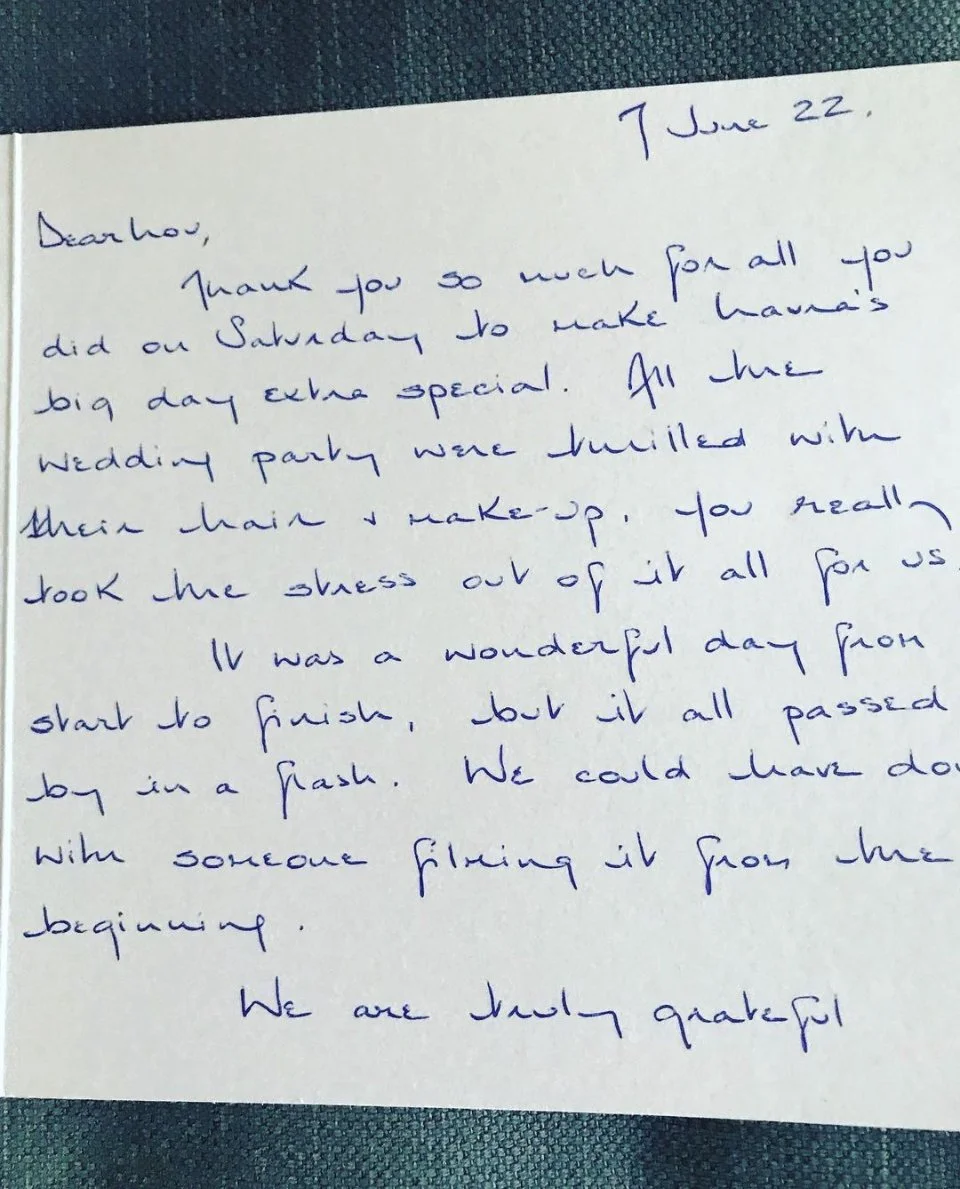 7 June 22.
Dear Lou,
Thank you so much for all you
did on Saturday to make Laura's
big day extra special. All the
wedding party were thrilled with
their hair & make-up. You really
took the stress out of it all for us.
It was a wonderful day from
start to finish, but it all passed
by in a flash. We could have do
with someone filming it from the
beginning.
We are truly grateful